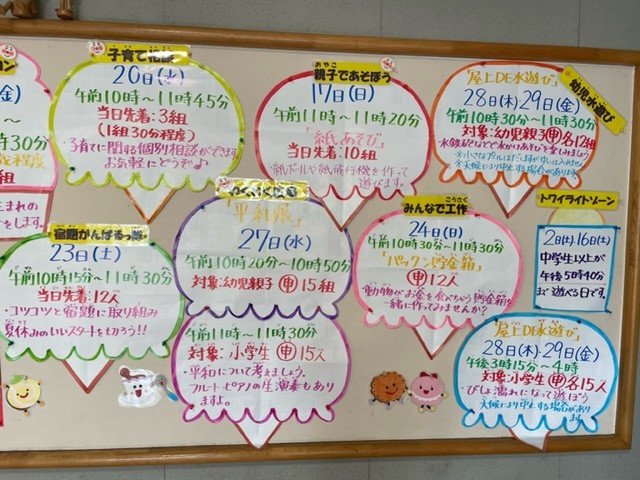 子育て相談
20日(水)
午前10時〜11時45分
当日先着:3組
(1組30分程度)
・子育てに関する個別相談ができます
お気軽にどうぞ♪
おやこ
親子であそぼう
17日(日)
午前11時〜11時20分
「紙あそび」
当日先着:10組
・紙ボールや紙飛行機を作って
遊びます。
幼児水遊び
「屋上DE水遊び」
28日(木)29日(金)
午前10時30分〜11時30分
対象:幼児親子申各12組
天候により中止する場合があります
宿題がんばるっ隊
23日(土)
午前10時15分〜11時30分
当日先着:12人
・コツコツと宿題に取り組み
夏休みのいいスタートをきろう!!
27日(水)
午前10時20分〜10時50分
対象:幼児親子 申15組
午前11時〜11時30分
対象:小学生 申15人
・平和について考えましょう。
フルート・ピアノの生演奏もあり
ますよ。
こうさく
みんなで工作
24日(日)
午前10時30分〜11時30分
「パックン貯金箱」
申12人
・動物がお金を食べちゃう貯金箱を
一緒に作ってみませんか?
トワイライトゾーン
2日(土)16日(土)
中学生以上が
午後5時40分
まで遊べる日です。
「屋上DE水遊び」
28日(木)・29日(金)
午後3時15分〜4時
対象:小学生 申各15人
・びしょ濡れになって遊ぼう
天候により中止する場合があり
ます